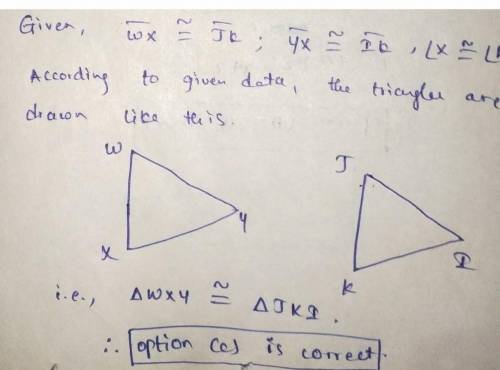 Given, WX ≅ JK ; YX ≅ IK , ∠X ≅ ∠
According to given data, the triangles are
drawn like this.
W
J
Y
X
I
K
i.e., ΔWXY ≅ ΔJKI.
∴ option (c) is correct.